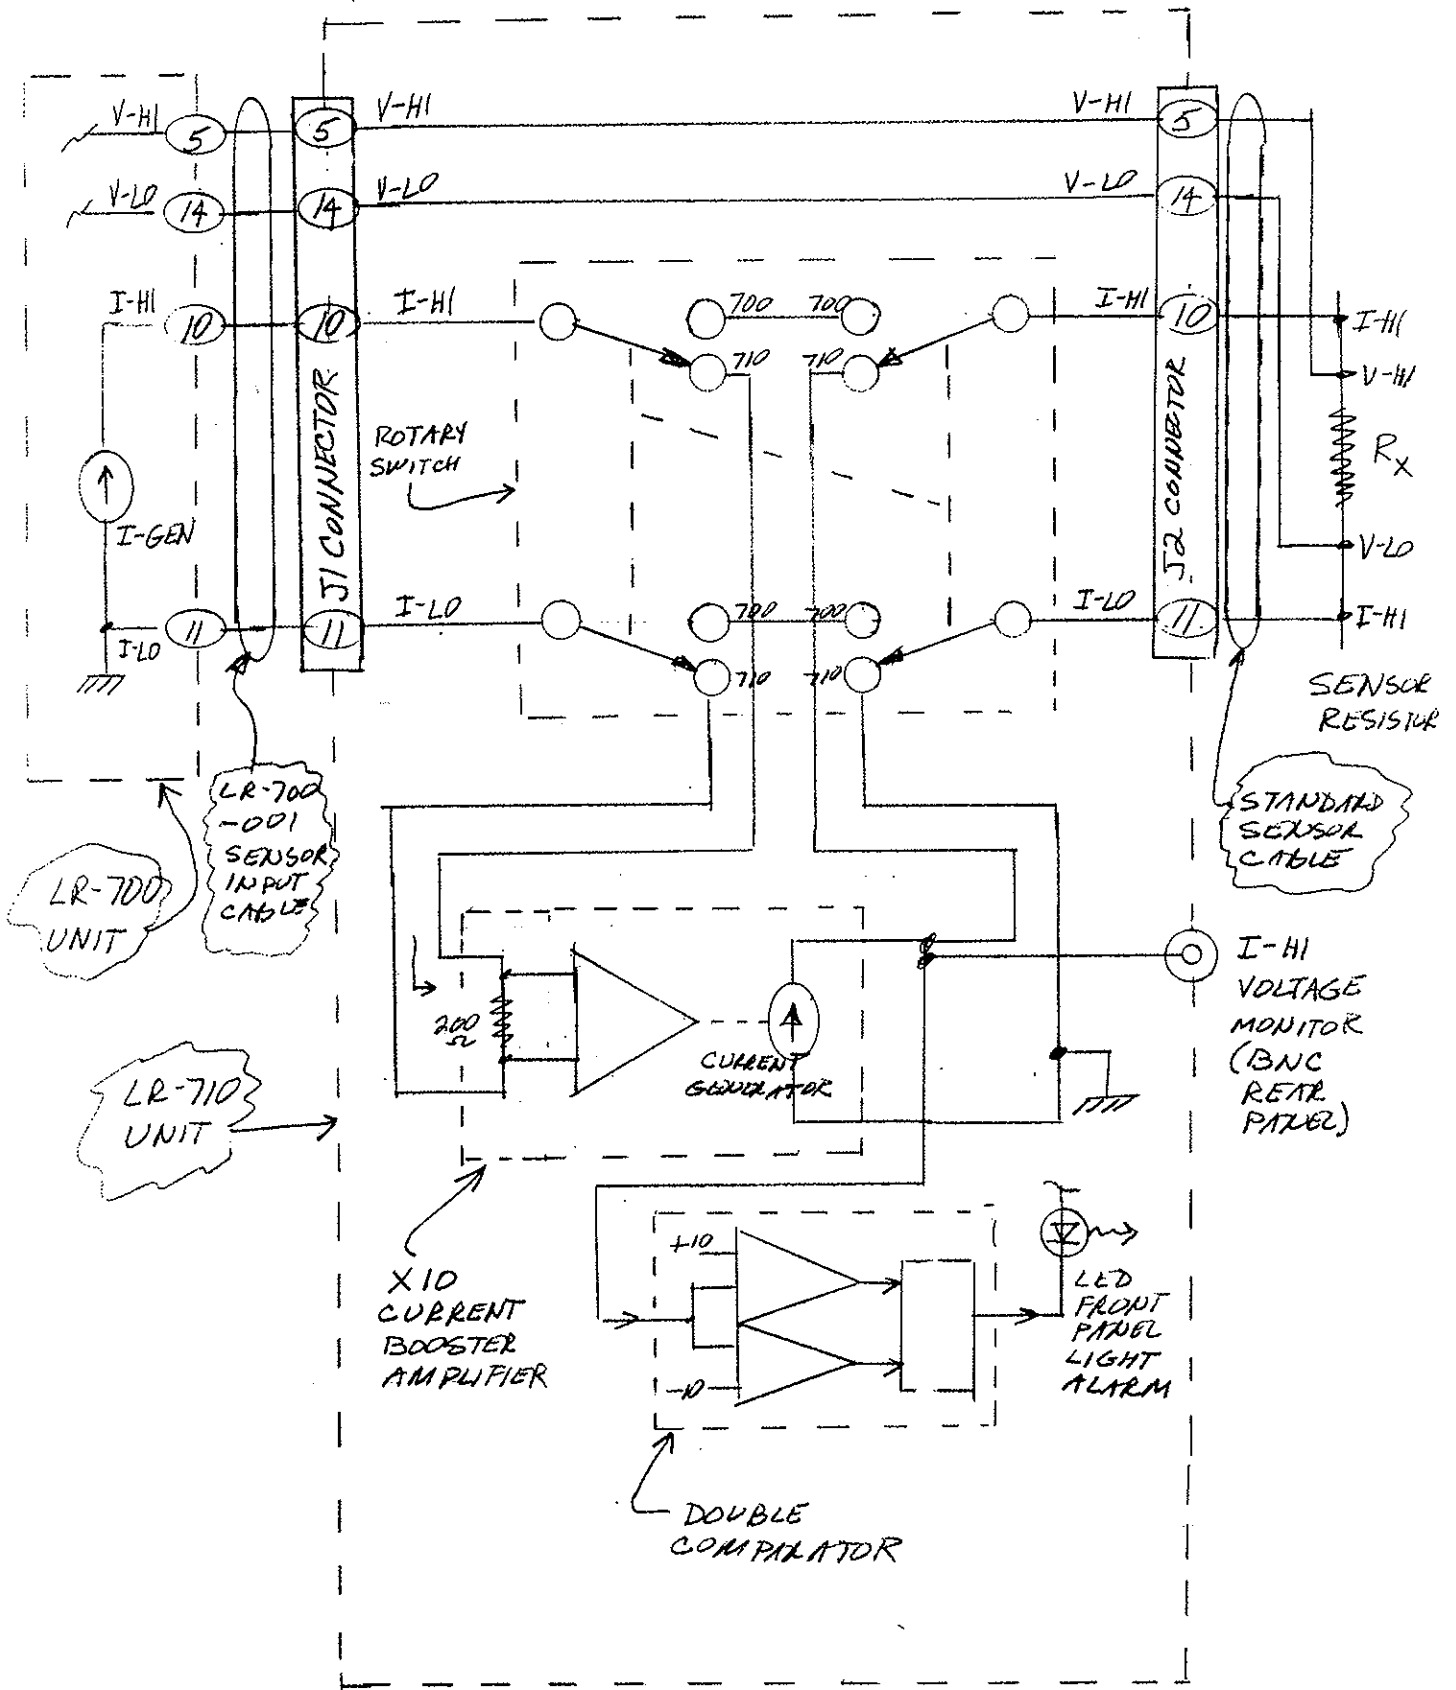 V-HI
5
5
V-HI
V-HI
5
V-LO
14
14
V-LO
V-LO
14
I-HI
10
10
I-HI
700
700
I-HI
10
I-HI
710
710
V-HI
ROTARY
SWITCH
J1 CONNECTOR
J2 CONNECTOR
RX
I-GEN
V-LO
I-LO
11
11
I-LO
700
700
I-LO
11
I-HI
710
710
SENSOR
RESISTOR
LR-700
-001
SENSOR
INPUT
CABLE
STANDARD
SENSOR
CABLE
LR-700
UNIT
I-HI
VOLTAGE
MONITOR
(BNC
REAR
PANEL)
200
Ω
CURRENT
GENERATOR
LR-710
UNIT
X10
CURRENT
BOOSTER
AMPLIFIER
+10
-10
LED
FRONT
PANEL
LIGHT
ALARM
DOUBLE
COMPARATOR